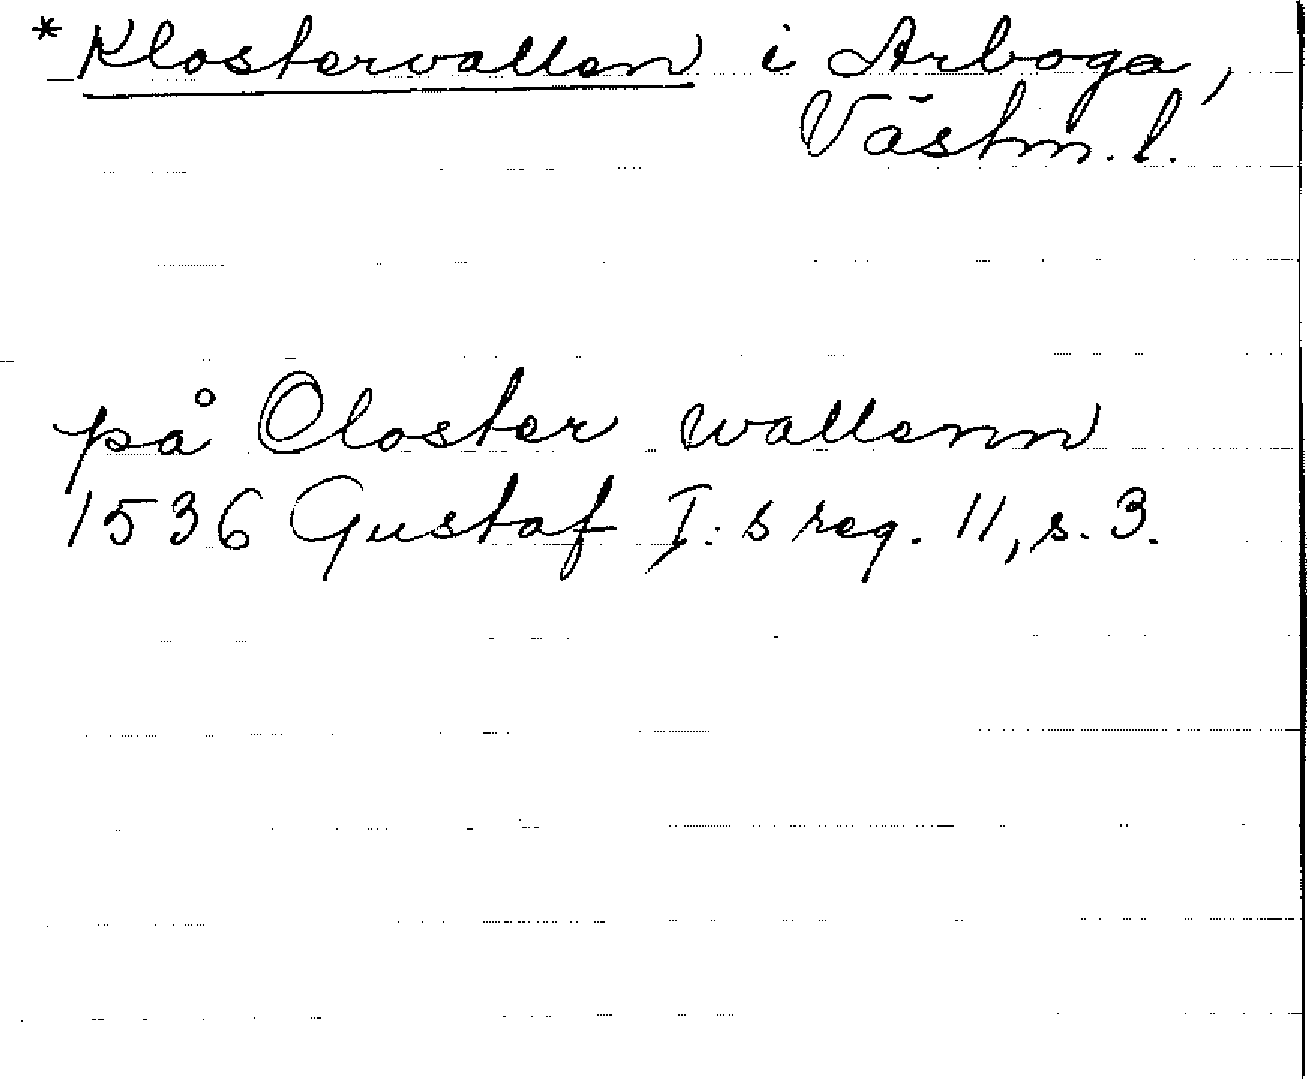 *Klostervallen i Arboga,
Västm. l.
på Closter wallenn
1536 Gustaf I:s reg. 11, s. 3.